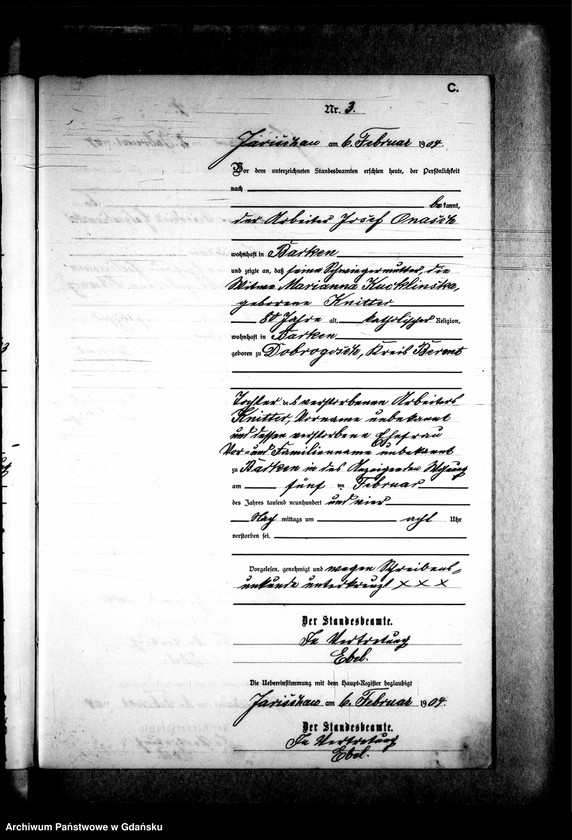 C.
Nr. 3.
Jarischau am 6. Februar 1904.
Vor dem unterzeichneten Standesbeamten erschien heute, der Persönlichkeit
nach
bekannt,
der Arbeiter Josef Onasch
wohnhaft in Barken
und zeigte an, daß seine Schwiegermutter, die
Witwe Marianna Kucklinska,
geborene Knitter
80 Jahre alt, katholischer Religion,
wohnhaft in Barken
geboren zu Dobrogosch, Kreis Berent
Tochter des verstorbenen Arbeiters
Knitter, Vorname unbekannt
und dessen verstorbene Ehefrau
Vor- und Familienname unbekannt
zu Barken in des Anzeigenden Wohnung
am fünf ten Februar
des Jahres tausend neunhundert und vier
Nach mittags um acht Uhr
verstorben sei.
Vorgelesen, genehmigt und wegen Schreibens-
unkunde unterkreuzt x x x
Der Standesbeamte.
In Vertretung
Ebel.
Die Uebereinstimmung mit dem Haupt-Register beglaubigt
Jarischau am 6. Februar 1904.
Der Standesbeamte.
In Vertretung
Ebel.
Archiwum Państwowe w Gdańsku